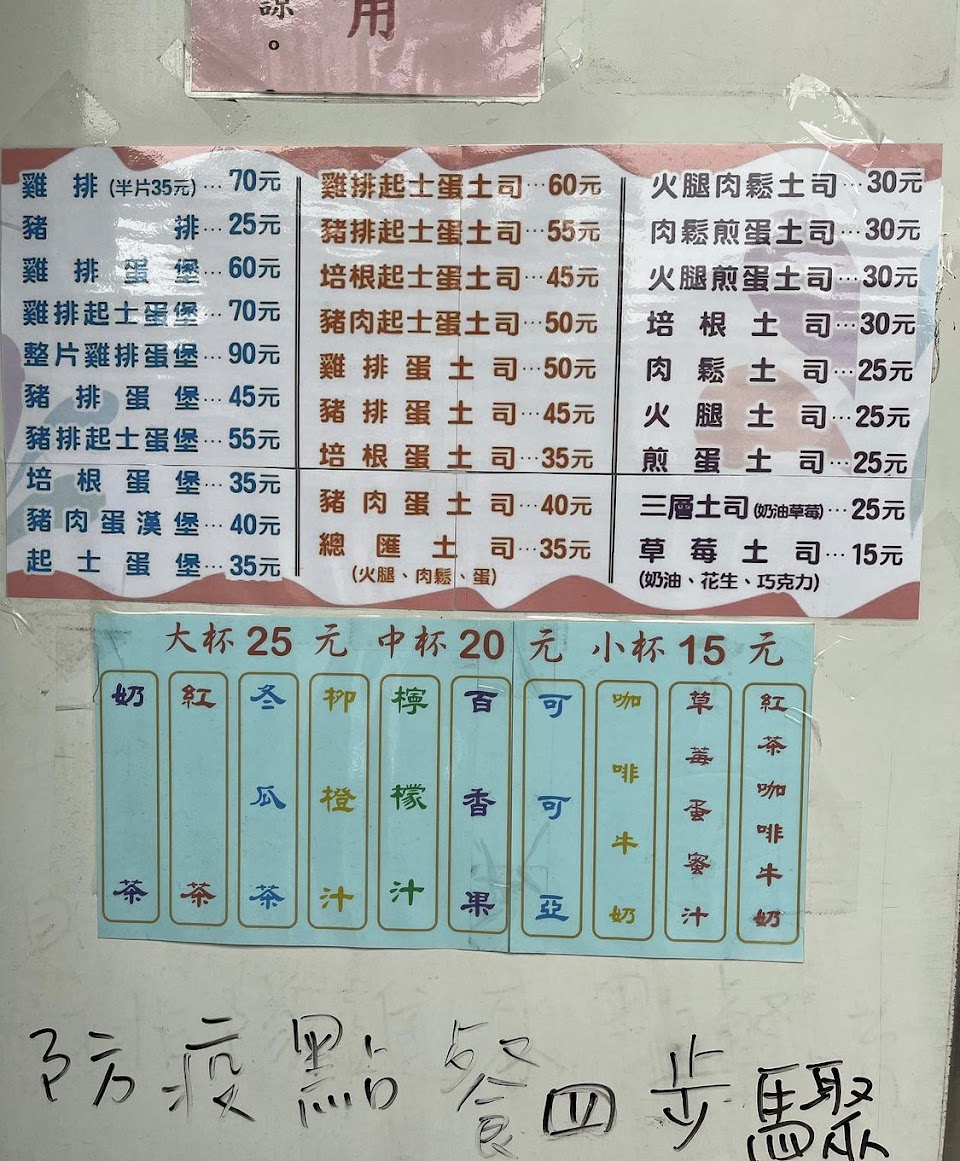 用
諒。
雞排(半片35元)…70元
豬排…25元
雞排蛋堡…60元
雞排起士蛋堡…70元
整片雞排蛋堡…90元
豬排蛋堡…45元
豬排起士蛋堡…55元
培根蛋堡…35元
豬肉蛋漢堡…40元
起士蛋堡…35元
雞排起士蛋土司…60元
豬排起士蛋土司…55元
培根起士蛋土司…45元
豬肉起士蛋土司…50元
雞排蛋土司…50元
豬排蛋土司…45元
培根蛋土司…35元
豬肉蛋土司…40元
總匯土司…35元
(火腿、肉鬆、蛋)
火腿肉鬆土司…30元
肉鬆煎蛋土司…30元
火腿煎蛋土司…30元
培根土司…30元
肉鬆土司…25元
火腿土司…25元
煎蛋土司…25元
三層土司(奶油草莓)…25元
草莓土司…15元
(奶油、花生、巧克力)
大杯25元 中杯20元 小杯15元
奶茶
紅茶
冬瓜茶
柳橙汁
檸檬汁
百香果
可可亞
咖啡牛奶
草莓蛋蜜汁
紅茶咖啡牛奶
防疫點餐四步驟